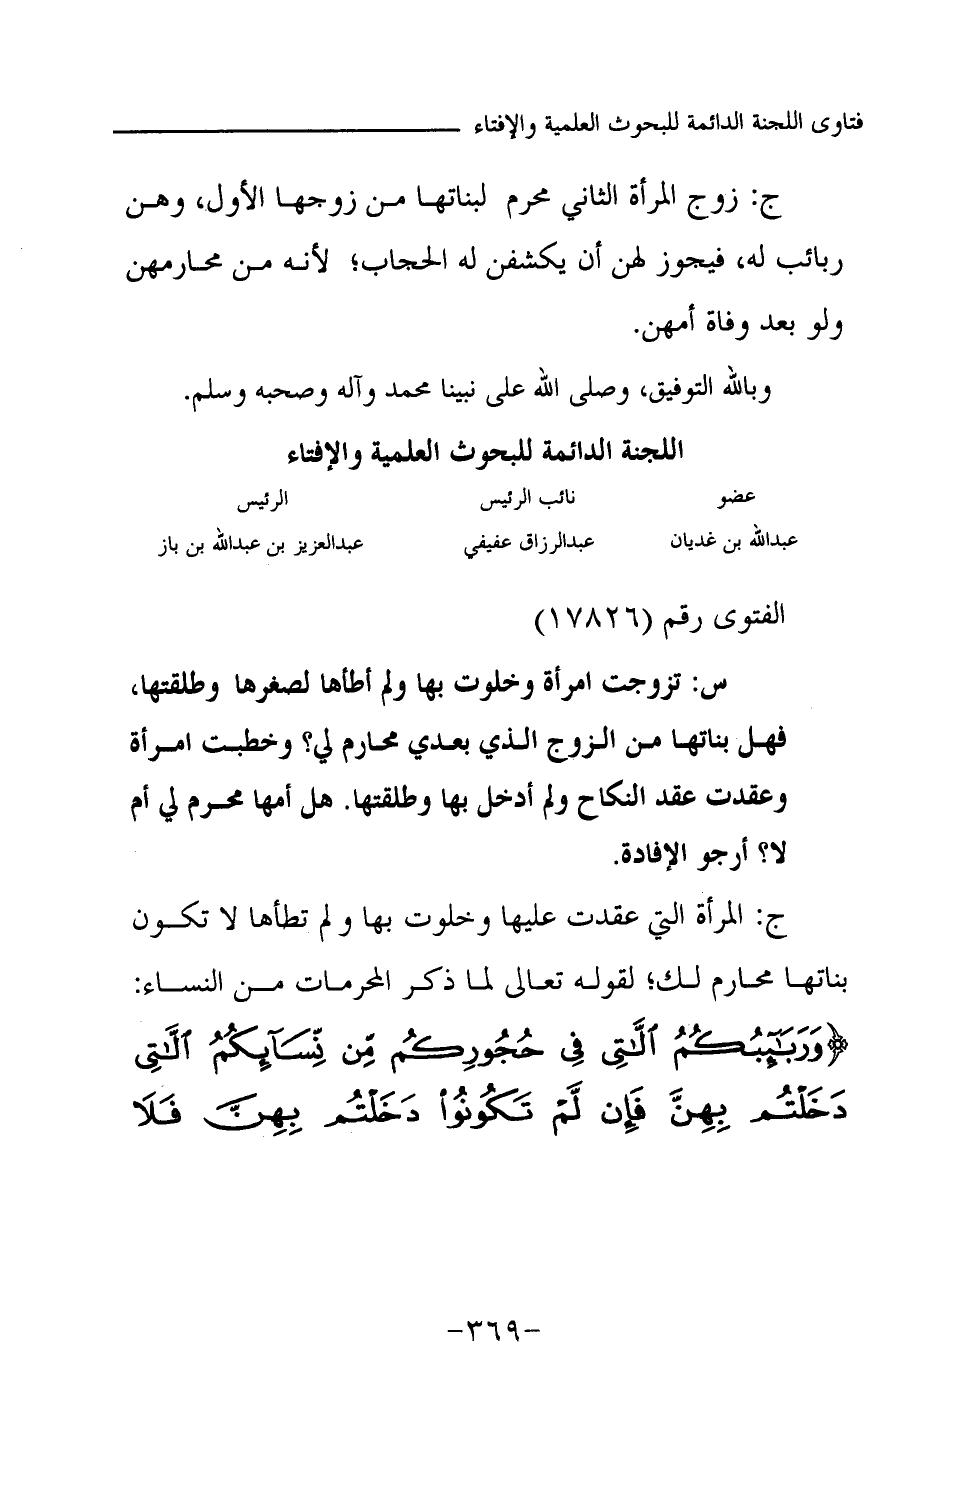 فتاوى اللجنة الدائمة للبحوث العلمية والإفتاء
ج: زوج المرأة الثاني محرم لبناتها من زوجها الأول، وهن
ربائب له، فيجوز لهن أن يكشفن له الحجاب؛ لأنه من محارمهن
ولو بعد وفاة أمهن.
وبالله التوفيق، وصلى الله على نبينا محمد وآله وصحبه وسلم.
اللجنة الدائمة للبحوث العلمية والإفتاء
عضو نائب الرئيس الرئيس
عبدالله بن غديان عبدالرزاق عفيفي عبدالعزيز بن عبدالله بن باز
الفتوى رقم (١٧٨٢٦)
س: تزوجت امرأة وخلوت بها ولم أطأها لصغرها وطلقتها،
فهل بناتها من الزوج الذي بعدي محارم لي؟ وخطبت امرأة
وعقدت عقد النكاح ولم أدخل بها وطلقتها. هل أمها محرم لي أم
لا؟ أرجو الإفادة.
ج: المرأة التي عقدت عليها وخلوت بها ولم تطأها لا تكون
بناتها محارم لك؛ لقوله تعالى لما ذكر المحرمات من النساء:
﴿وَرَبَـٰٓئِبُكُمُ ٱلَّـٰتِى فِى حُجُورِكُم مِّن نِّسَآئِكُمُ ٱلَّـٰتِى
دَخَلْتُم بِهِنَّ فَإِن لَّمْ تَكُونُوا۟ دَخَلْتُم بِهِنَّ فَلَا
-٣٦٩-